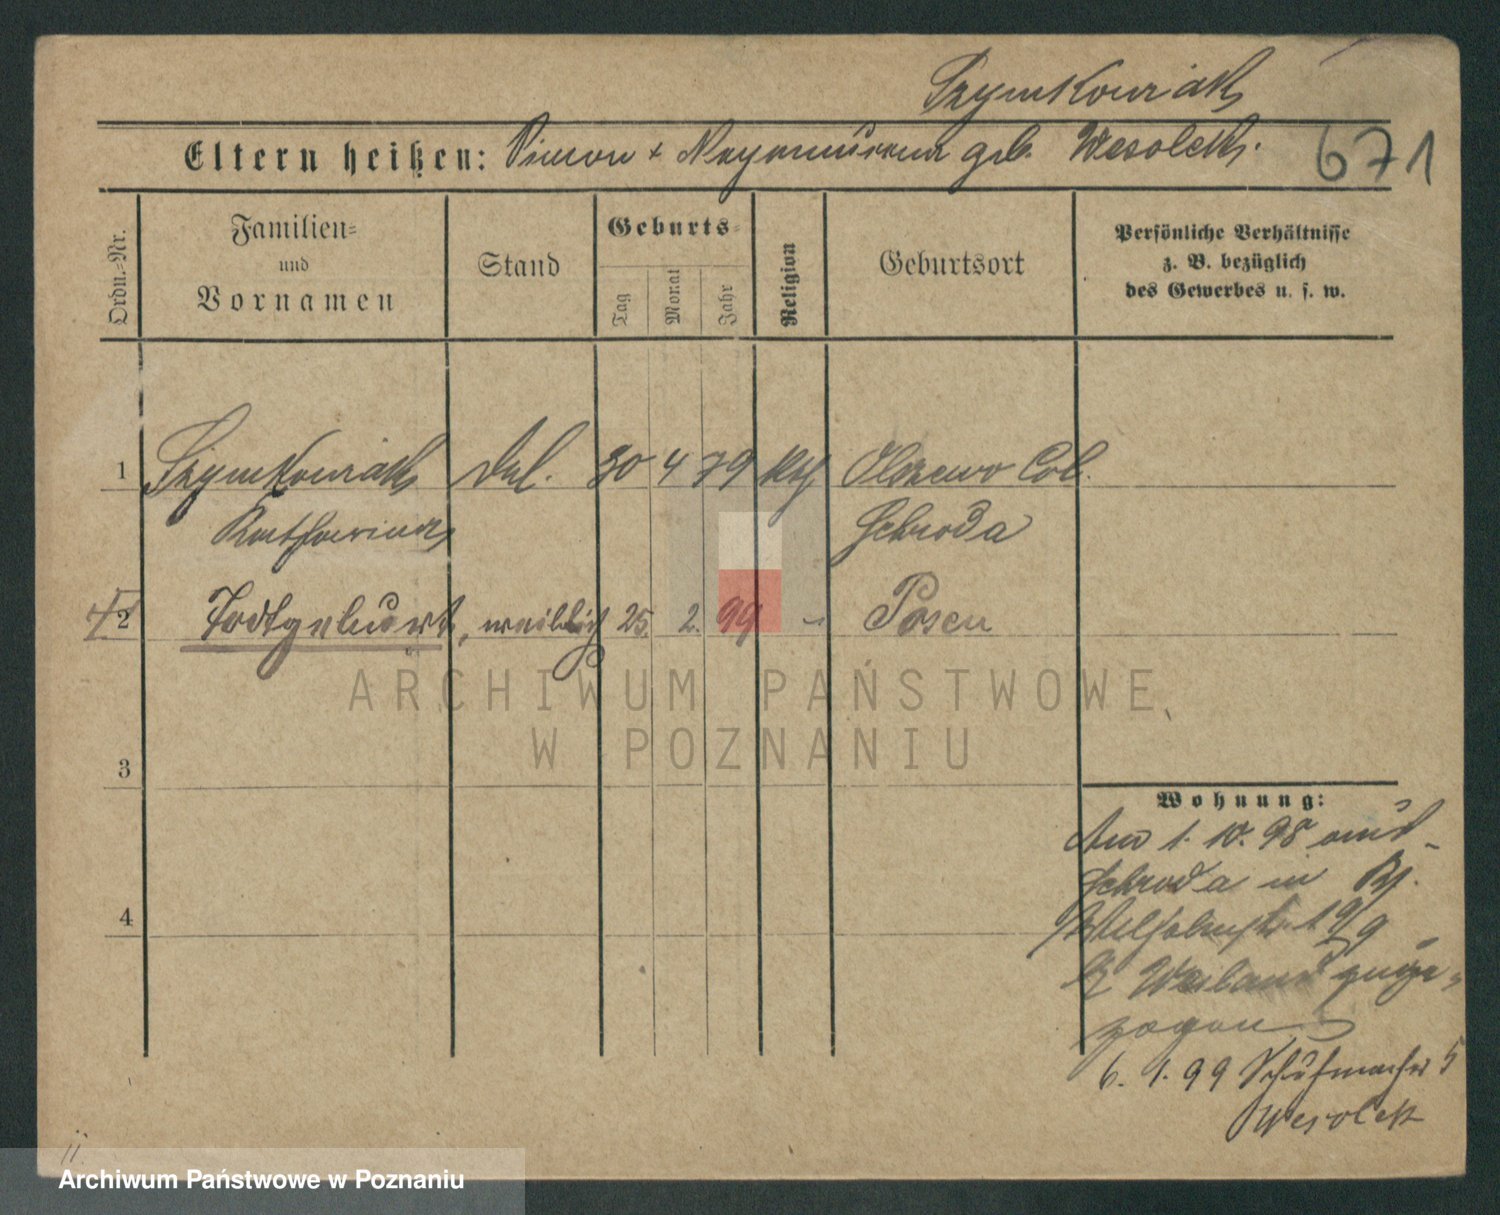 Szymkowiak
Eltern heißen: Simon + Nepomucena geb. Wesolek.
671
Ordn.-Nr.
Familien-
und
Vornamen
Stand
Geburts-
Tag
Monat
Jahr
Religion
Geburtsort
Persönliche Verhältnisse
z. B. bezüglich
des Gewerbes u. s. w.
1 Szymkowiak 30 4 79 kth Col.
Katharina Schroda
2 Todtgeburt, weiblich 25. 2. 99 - Posen
3
Wohnung:
Am 1. 10. 98 aus
Schroda in
4
Wilhelmstr. 19/9
b/ Weiland zuge-
zogen
6. 1. 99 Schuhmacher 5
Wesolek
ARCHIWUM PAŃSTWOWE
W POZNANIU
Archiwum Państwowe w Poznaniu